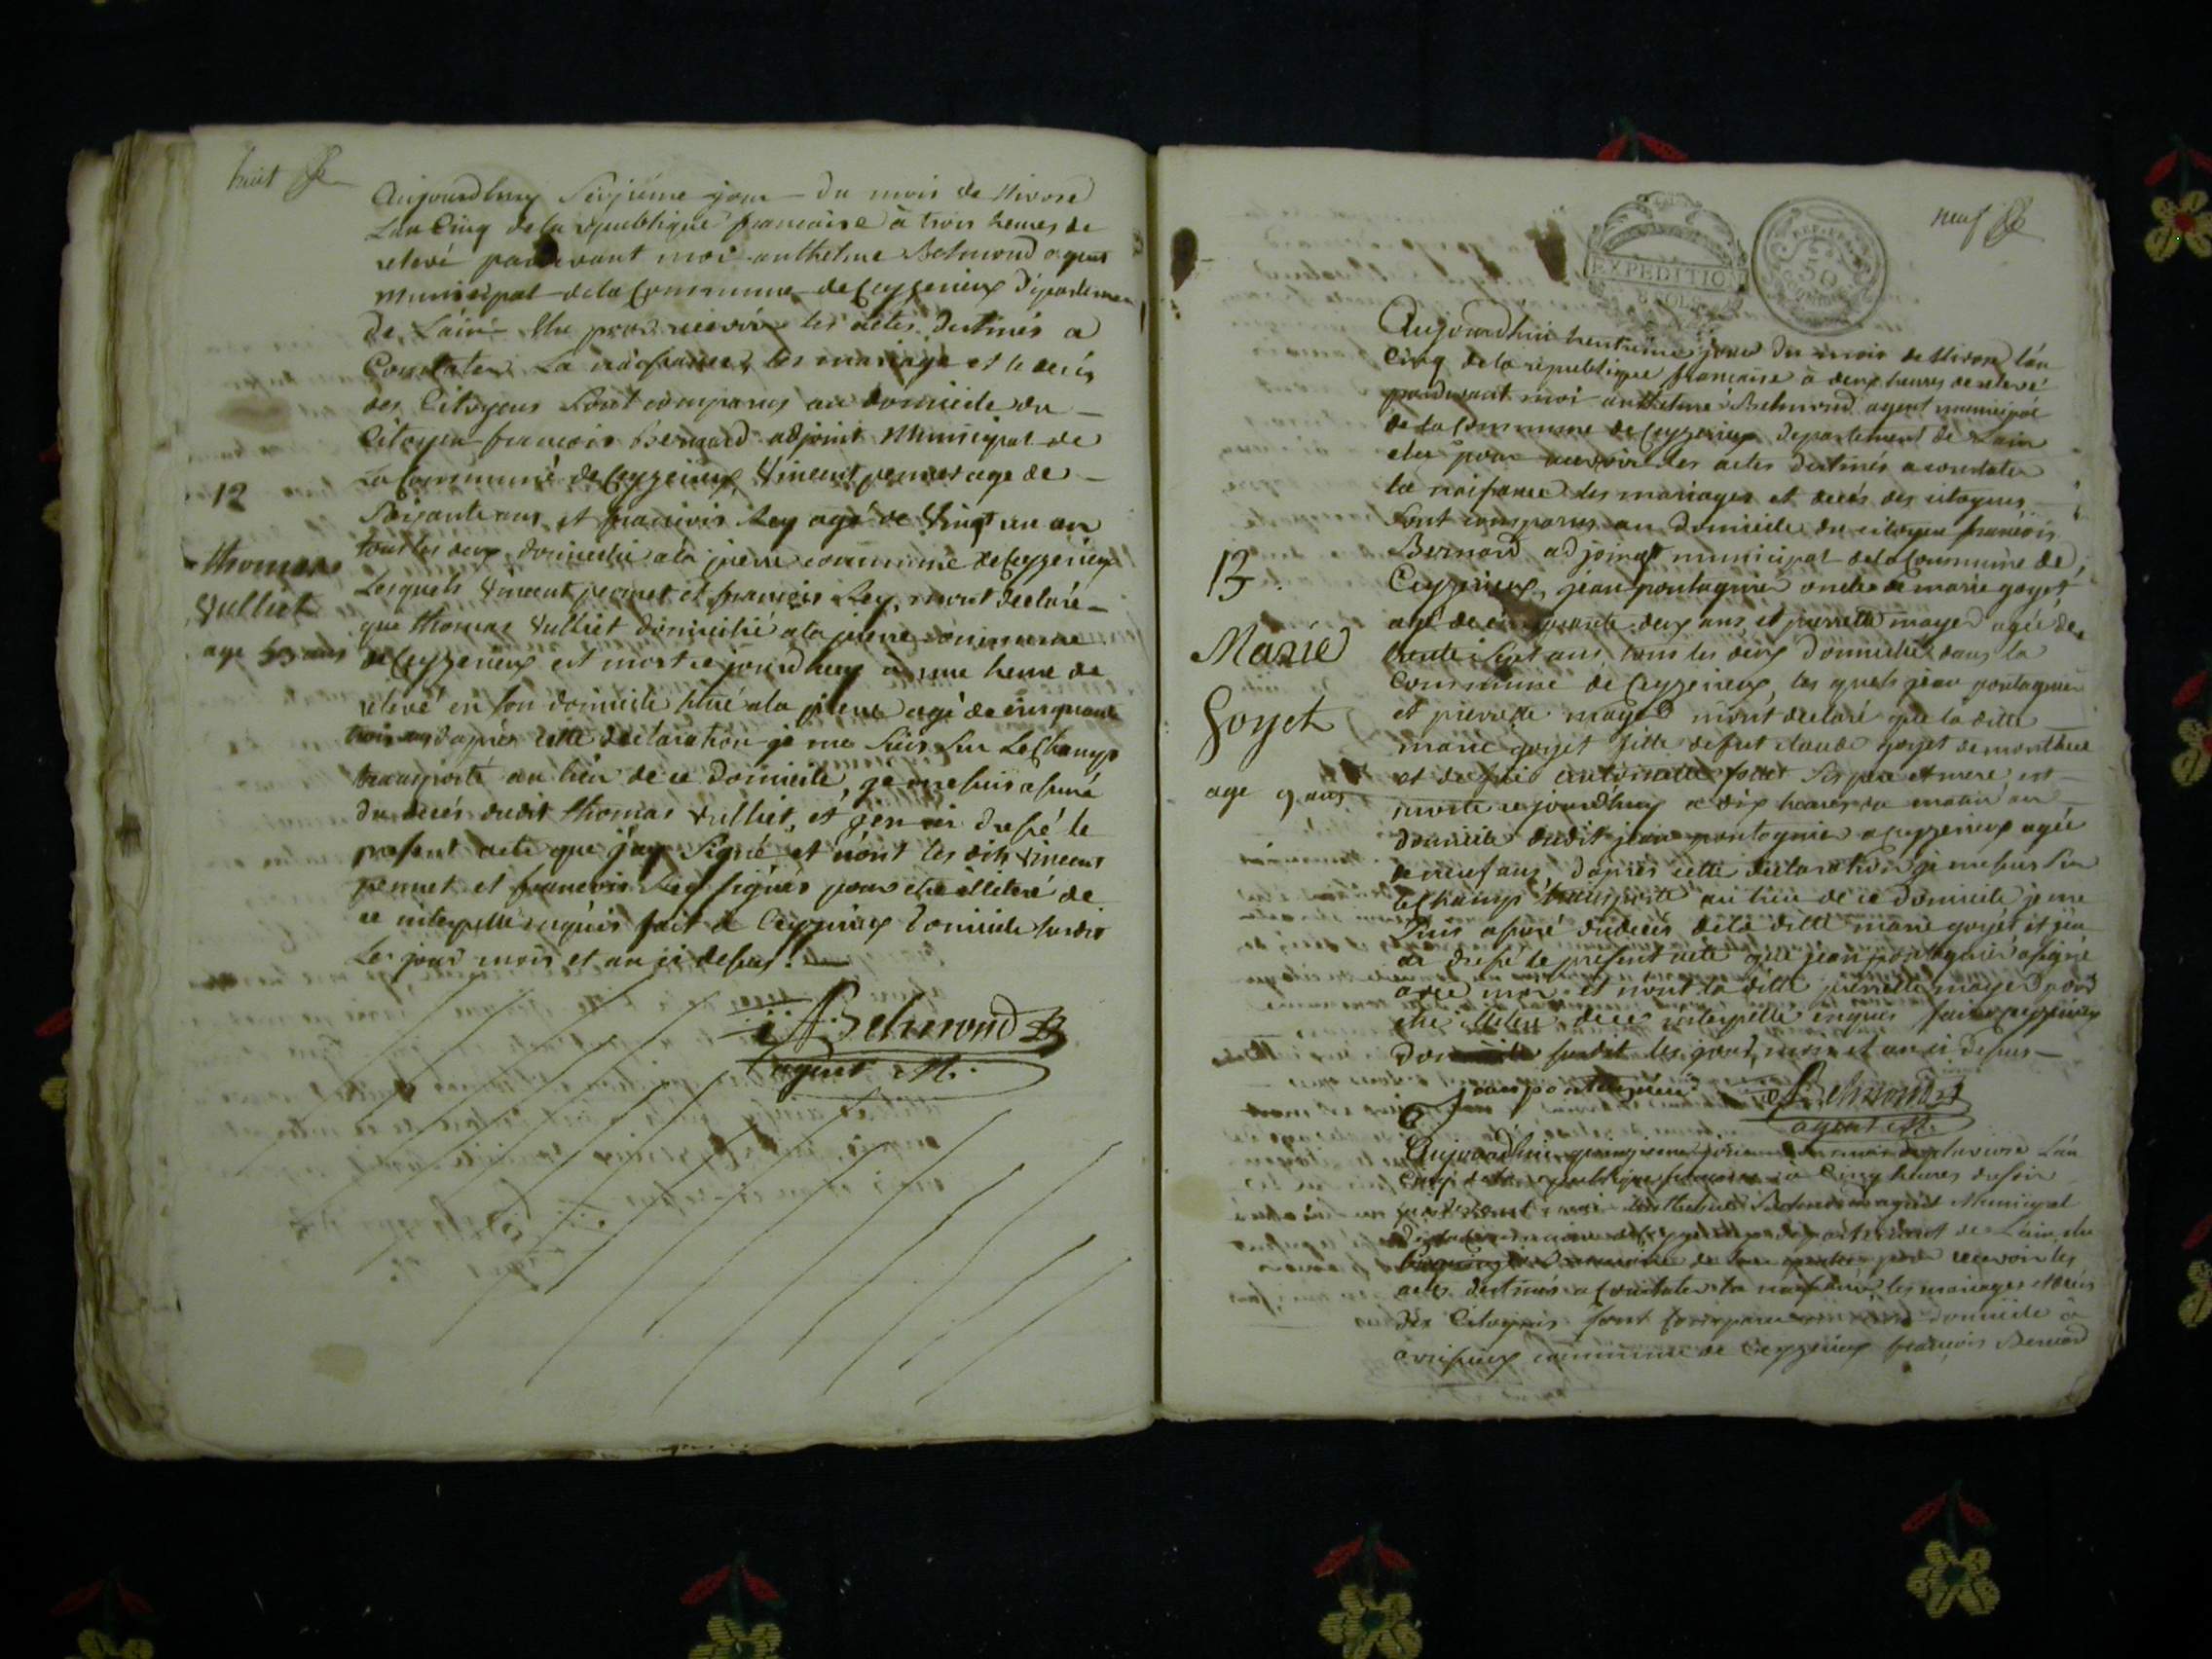 huit
Aujourdhuy Seizième jour du mois de Nivose
Lan Cinq de la republique francaise à trois heures de
relevé pardevant moi anthelme Belmond agent
Municipal de la Commune de Ceyzerieux départemen
de Lain élu pour recevoir les actes destinés a
Constater La naissance, les mariage et le decés
des Citoyens Sont comparus au domicile du
Citoyen francois Bernard adjoint Municipal de
La Commune de Ceyzerieux, Vincent pernet age de
12
Soixante ans et francois Rey agé de Vingt un an
tous les deux domicilié a la pierre commune de Ceyzerieux
thomas
Vulliet
age 53 ans
Lesquels Vincent pernet et francois Rey, m'ont declaré
que thomas Vulliet domicilié a la pierre commune
de Ceyzerieux est mort ce jourdhuy à une heure de
relevé en son domicile situé a la pierre agé de cinquante
trois ans d'après cette declaration je me suis sur Le Champ
transporté au lieu de ce domicile, je me suis assuré
du decés dudit thomas Vulliet, et j'en ai dressé le
present acte que j'ay Signé et n'ont les dits Vincent
pernet et francois Rey signés pour etre illiteré de
ce interpellé requis fait a Ceyzerieux domicile susdit
Les jour mois et an ci dessus.
A Belmond
agent M.
neuf
EXPEDITION
8 SOLS
50
Aujourdhui trentieme jour du mois de Nivose l'an
Cinq de la republique francaise à deux heures de relevé
pardevant moi anthelme Belmond agent municipal
de la Commune de Ceyzerieux departement de Lain
elu pour recevoir les actes destinés a constater
la naissance les mariages et decés des citoyens
Sont comparus au domicile du citoyen francois
Bernard adjoinct municipal de la Commune de
13
Ceyzerieux, jean pontagnier oncle de marie goyet
agé de cinquante deux ans, et pierrette mayer agée de
Marie
Goyet
age 9 ans
trente Sept ans tous les deux domicilié dans la
Commune de Ceyzerieux, les quels jean pontagnier
et pierrette mayer m'ont declaré que la ditte
marie goyet fille de fut claude goyet
et de antoinette Ses pere et mere est
morte ce jourdhuy a dix heures du matin au
domicile dudit jean pontagnier a Ceyzerieux agée
de neuf ans, d'après cette declaration je me suis Sur
le Champ transporté au lieu de ce domicile je me
Suis assuré du decés de la ditte marie goyet et j'en
ai dressé le present acte que jean pontagnier a signé
avec moi et n'ont la ditte pierrette mayer pour
etre illiteré de ce interpellé requis fait a Ceyzerieux
susdit les jour, mois et an ci dessus
jean pontagnier
A Belmond
agent M.
Aujourdhui jour du mois de L'an
Cinq de la republique francaise à Cinq heures du soir
pardevant moi anthelme Belmond agent Municipal
de la Commune de Ceyzerieux departement de Lain, elu
pour recevoir les
actes destinés a Constater la naissance, les mariages et decés
des Citoyens Sont Comparu domicile
commune de Ceyzerieux francois Bernard